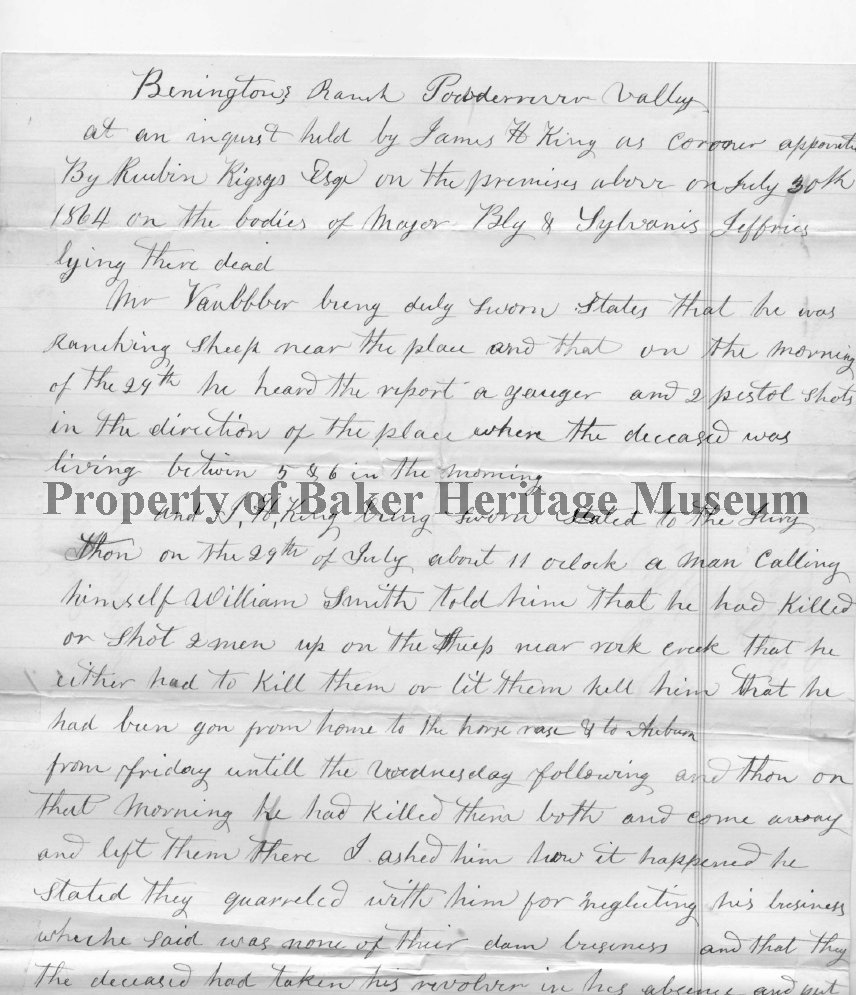 Benington's Ranch Powderriver Valley
at an inquest held by James H King as coroner
By Ruibin Rigsys Esqr on the premises above on July 30th
1864 on the bodies of Major Bly & Sylvanis Jeffries
lying there dead
Mr Vanbbber being duly sworn States that he was
Ranching Sheep near the place and that on the morning
of the 29th he heard the report a yauger and 2 pistol shots
in the direction of the place where the deceased was
living betwin 5 & 6 in the morning
Property of Baker Heritage Museum
and J, H, King being sworn Stated to the Jury
Thon on the 29th of July about 11 oclock a man Calling
himself William Smith told him that he had Killed
or Shot 2 men up on the Sheep near rock creek that he
either had to Kill them or let them kill him that he
had bun gon from home to the horse rase & to Auburn
from Friday untill the Wednesday following and thon on
that Morning he had Killed them both and come away
and left them there I asked him how it happened he
Stated they quarreled with him for neglecting his business
whiche Said was none of their dam business and that they
the deceased had taken his revolver in his absence and put